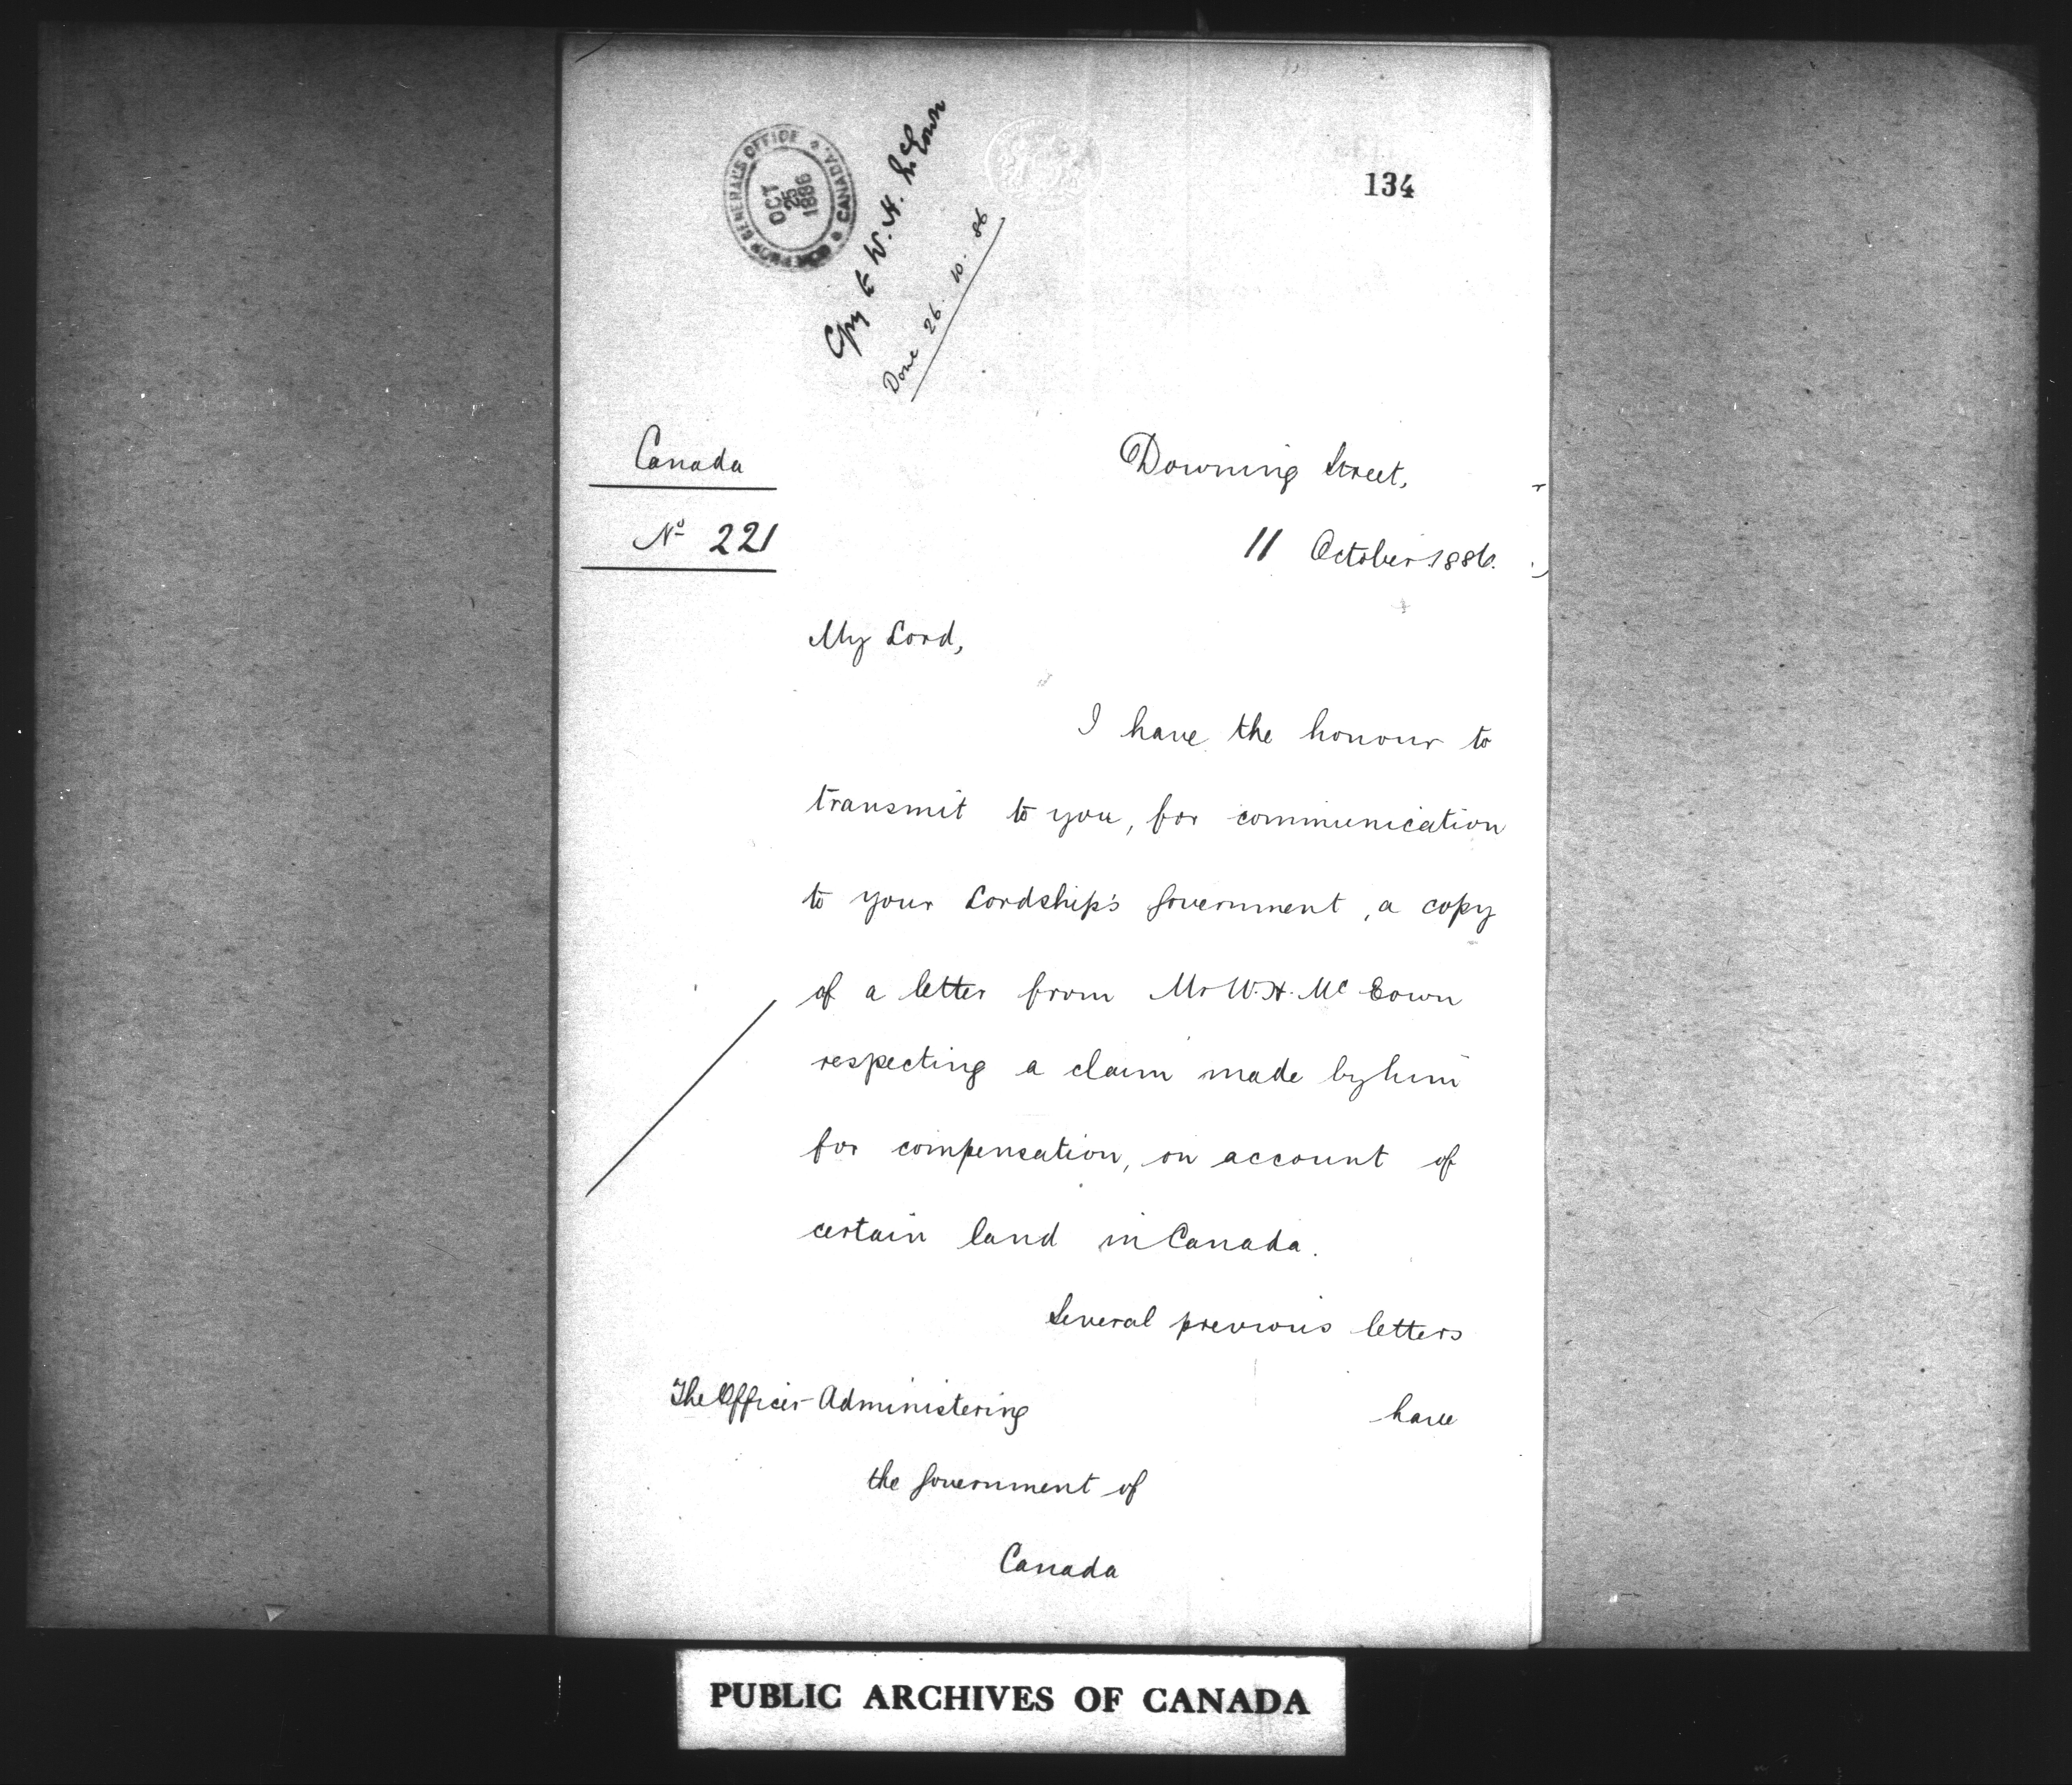 134
GOVERNOR GENERAL'S OFFICE
CANADA.
OCT
25
1886
Copy to W. H. McEown
Done 26. 10. 86
Canada
No 221
Downing Street,
11 October 1886.
My Lord,
I have the honour to
transmit to you, for communication
to your Lordship's Government, a copy
of a letter from Mr W. H. Mc Eown
respecting a claim made by him
for compensation, on account of
certain land in Canada.
Several previous letters
have
The Officer Administering
the Government of
Canada
PUBLIC ARCHIVES OF CANADA